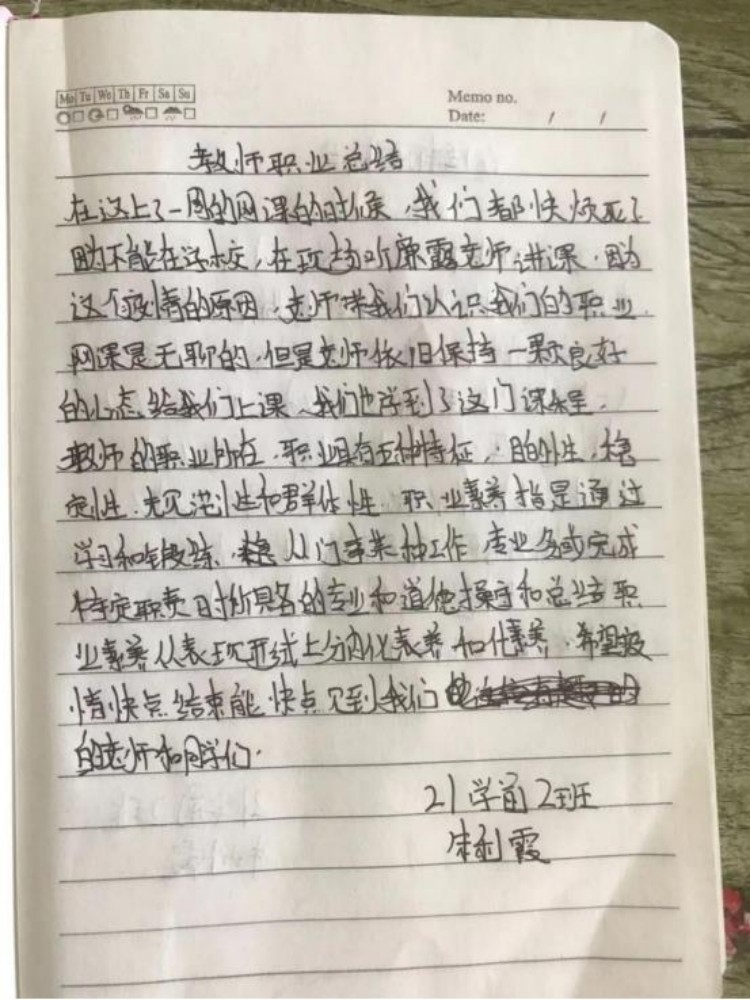 Mo Tu We Th Fr Sa Su
Memo no.
Date: / /
教师职业总结
在这上了一周的网课的时候,我们都快烦死了
因为不能在学校,在现场听廖露老师讲课.因为
这个疫情的原因,老师带我们认识我们的职业.
网课是无聊的,但是老师依旧保持一颗良好
的心态给我们上课、我们也学到了这门课程.
教师的职业所在,职业具有五种特征,目的性,稳
定性.规范性和群体性.职业素养指是通过
学习和锻练,从门事某种工作专业务或完成
特定职责时所具备的专业和道德操守和总结职
业素养从表现形式上分内化素养和化素养.希望疫
情快点结束能快点见到我们
的老师和同学们.
21学前2班
霞